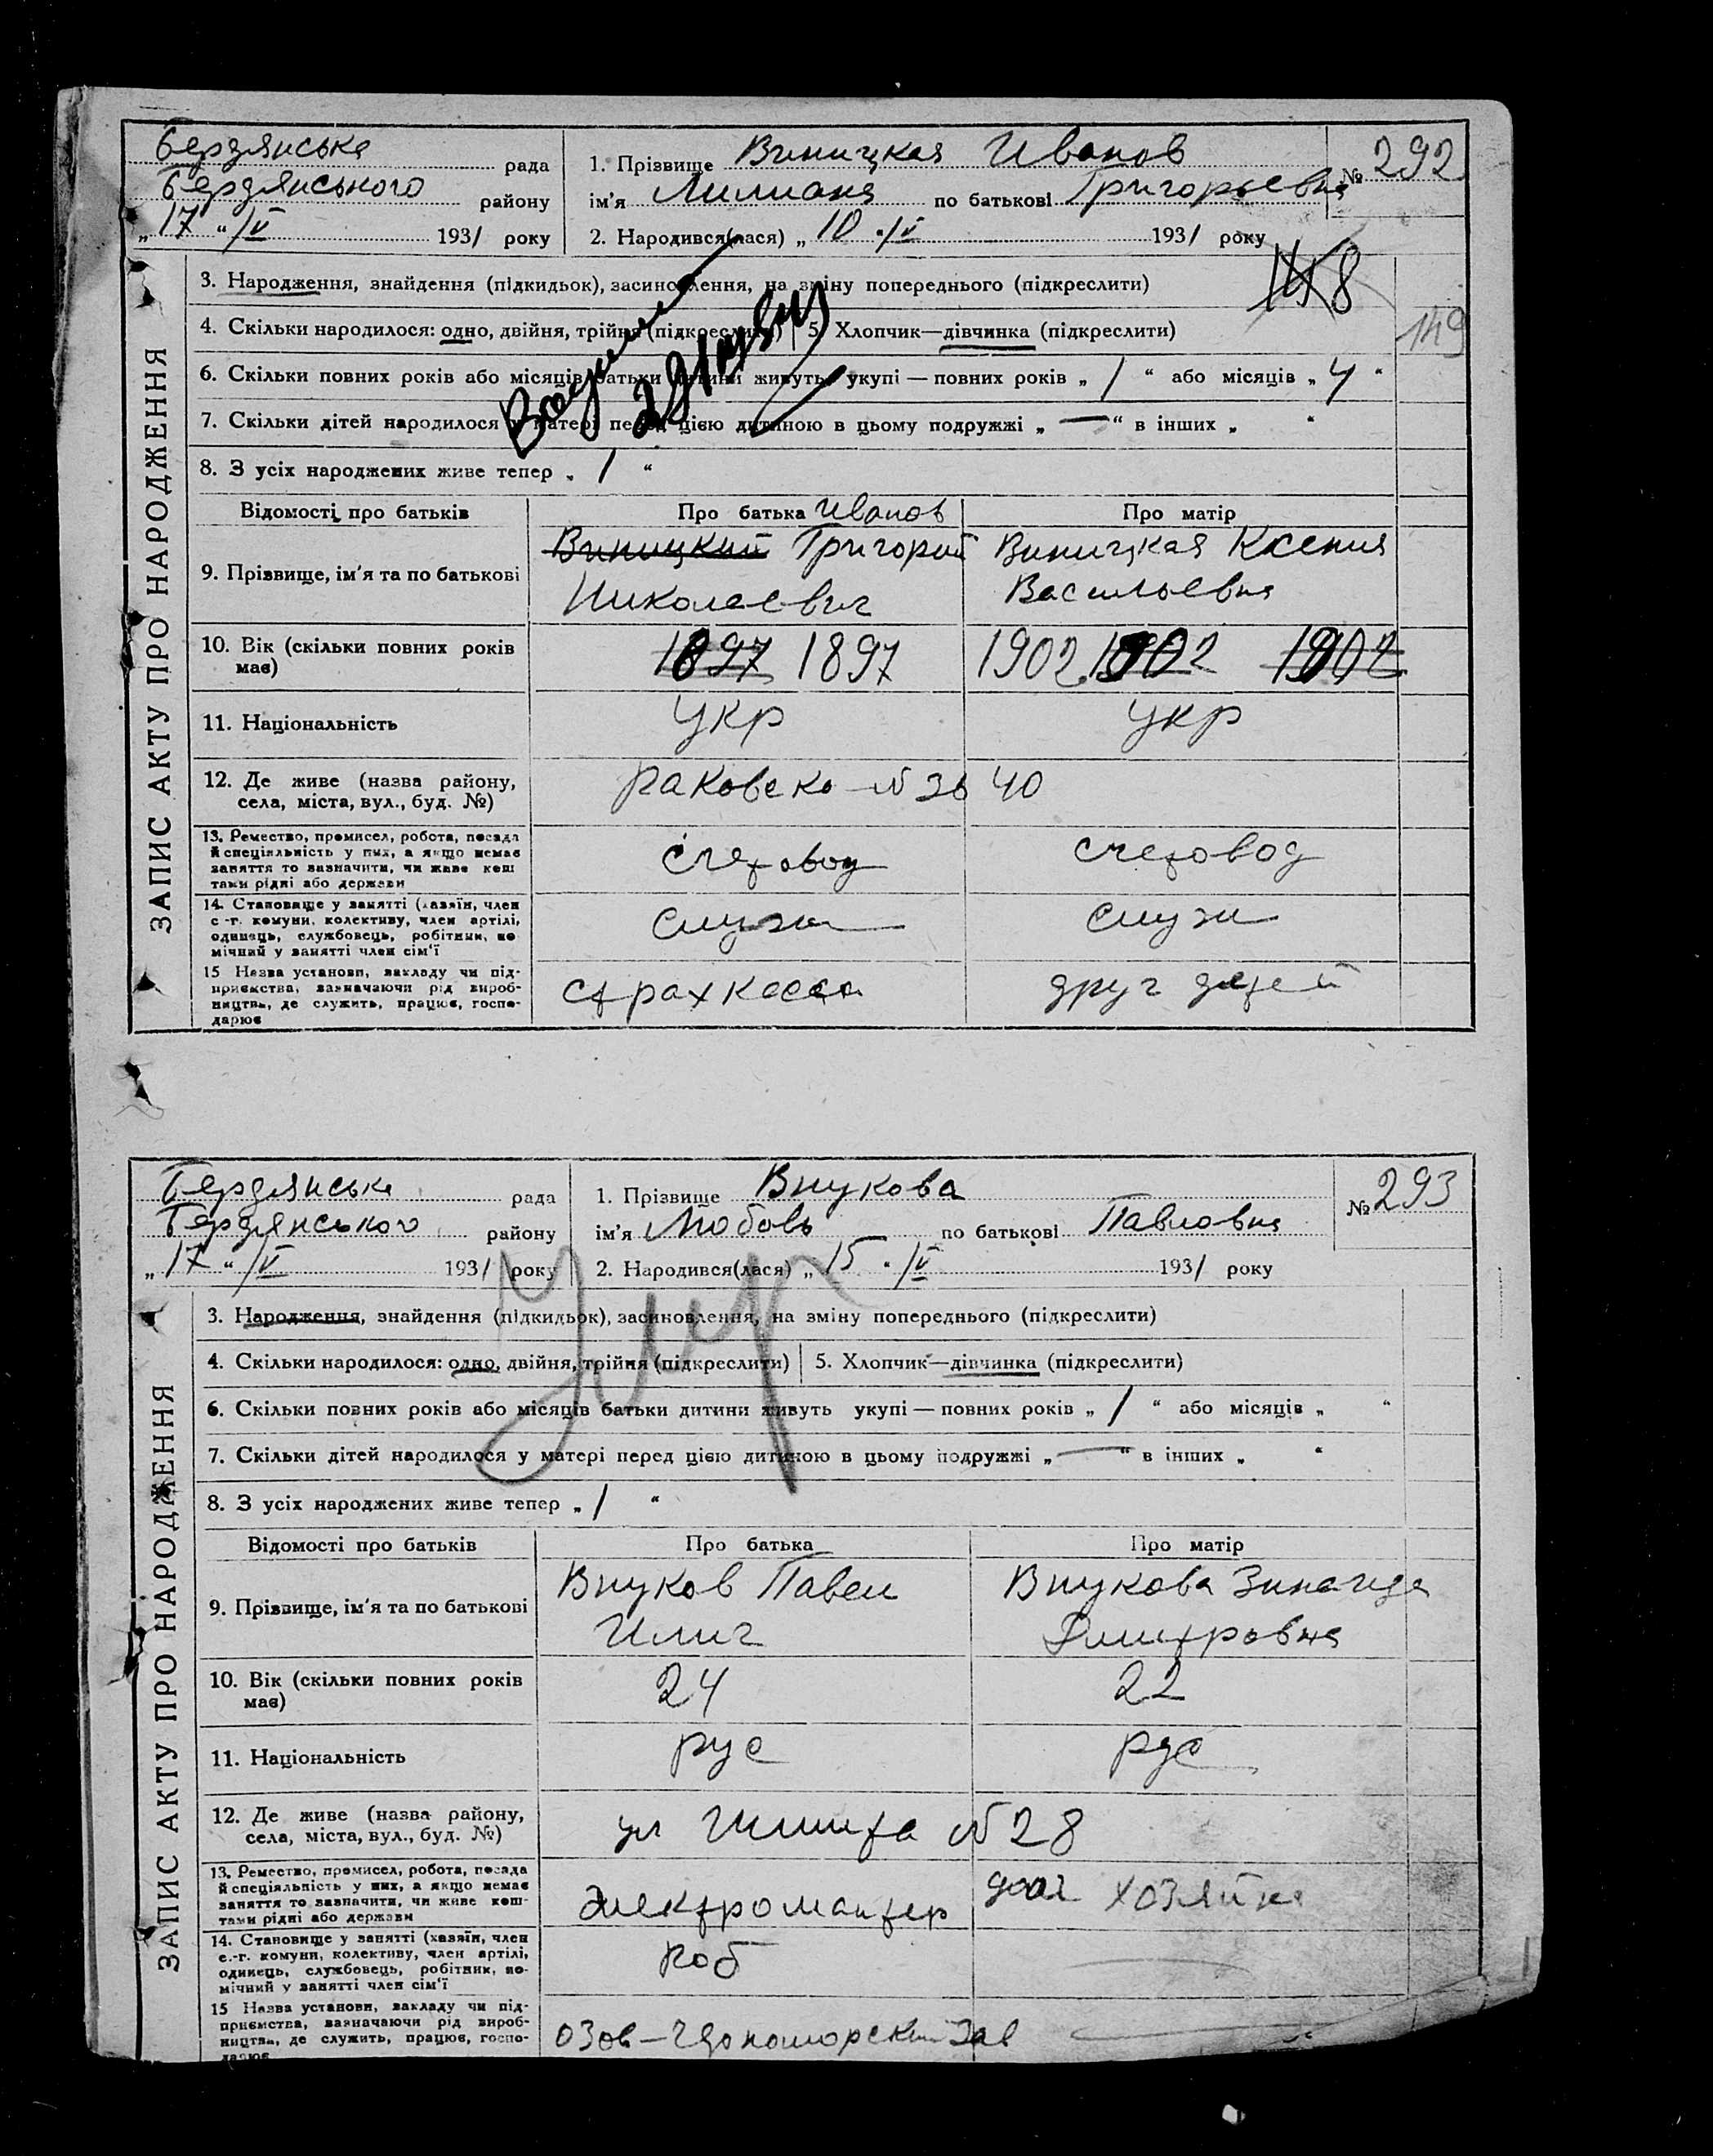 Бердянська рада
Бердянського району
„17“ IV 1931 року
1. Прізвище Виницкая Иванов
ім'я Лилиана по батькові Григорьевна
2. Народився(лася) „10“ IV 1931 року
№ 292
ЗАПИС АКТУ ПРО НАРОДЖЕННЯ
3. Народження, знайдення (підкидьок), засиновлення, на зміну попереднього (підкреслити)
8
149
4. Скільки народилося: одно, двійня, трійня (підкреслити) 5. Хлопчик—дівчинка (підкреслити)
6. Скільки повних років або місяців батьки дитини живуть укупі — повних років „ 1 “ або місяців „ 4 “
7. Скільки дітей народилося у матері перед цією дитиною в цьому подружжі „ — “ в інших „ “
8. З усіх народжених живе тепер „ 1 “
Відомості про батьків Про батька Иванов Про матір
9. Прізвище, ім'я та по батькові
Виницкий Григорий
Николаевич
Виницкая Ксения
Васильевна
10. Вік (скільки повних років
має)
1897 1897
1902 1902 1902
11. Національність укр укр
12. Де живе (назва району,
села, міста, вул., буд. №)
Раковско №36 40
13. Ремество, промисел, робота, посада
й спеціяльність у них, а якщо немає
заняття то зазначити, чи живе кош
тами рідні або держави
счетовод счетовод
14. Становище у занятті (хазяїн, член
с.-г. комуни, колективу, член артілі,
одинець, службовець, робітник, по
мічний у занятті член сім'ї
служ служ
15 Назва установи, закладу чи під-
приємства, зазначаючи рід вироб-
ництва, де служить, працює, госпо-
дарює
страхкасса друг детей
Бердянська рада
Бердянського району
„17“ IV 1931 року
1. Прізвище Внукова
ім'я Любовь по батькові Павловна
2. Народився(лася) „15“ IV 1931 року
№ 293
ЗАПИС АКТУ ПРО НАРОДЖЕННЯ
3. Народження, знайдення (підкидьок), засиновлення, на зміну попереднього (підкреслити)
4. Скільки народилося: одно, двійня, трійня (підкреслити) 5. Хлопчик—дівчинка (підкреслити)
6. Скільки повних років або місяців батьки дитини живуть укупі — повних років „ 1 “ або місяців „ “
7. Скільки дітей народилося у матері перед цією дитиною в цьому подружжі „ — “ в інших „ “
8. З усіх народжених живе тепер „ 1 “
Відомості про батьків Про батька Про матір
9. Прізвище, ім'я та по батькові
Внуков Павел
Илич
Внукова Зинаида
Дмитровна
10. Вік (скільки повних років
має)
24 22
11. Національність рус рус
12. Де живе (назва району,
села, міста, вул., буд. №)
ул Шмита №28
13. Ремество, промисел, робота, посада
й спеціяльність у них, а якщо немає
заняття то зазначити, чи живе кош-
тами рідні або держави
электромантер дом хозяйка
14. Становище у занятті (хазяїн, член
с.-г. комуни, колективу, член артілі,
одинець, службовець, робітник, по-
мічний у занятті член сім'ї
роб
15 Назва установи, закладу чи під-
приємства, зазначаючи рід вироб-
ництва, де служить, працює, госпо-
дарює
Озов—Черноморский Зав